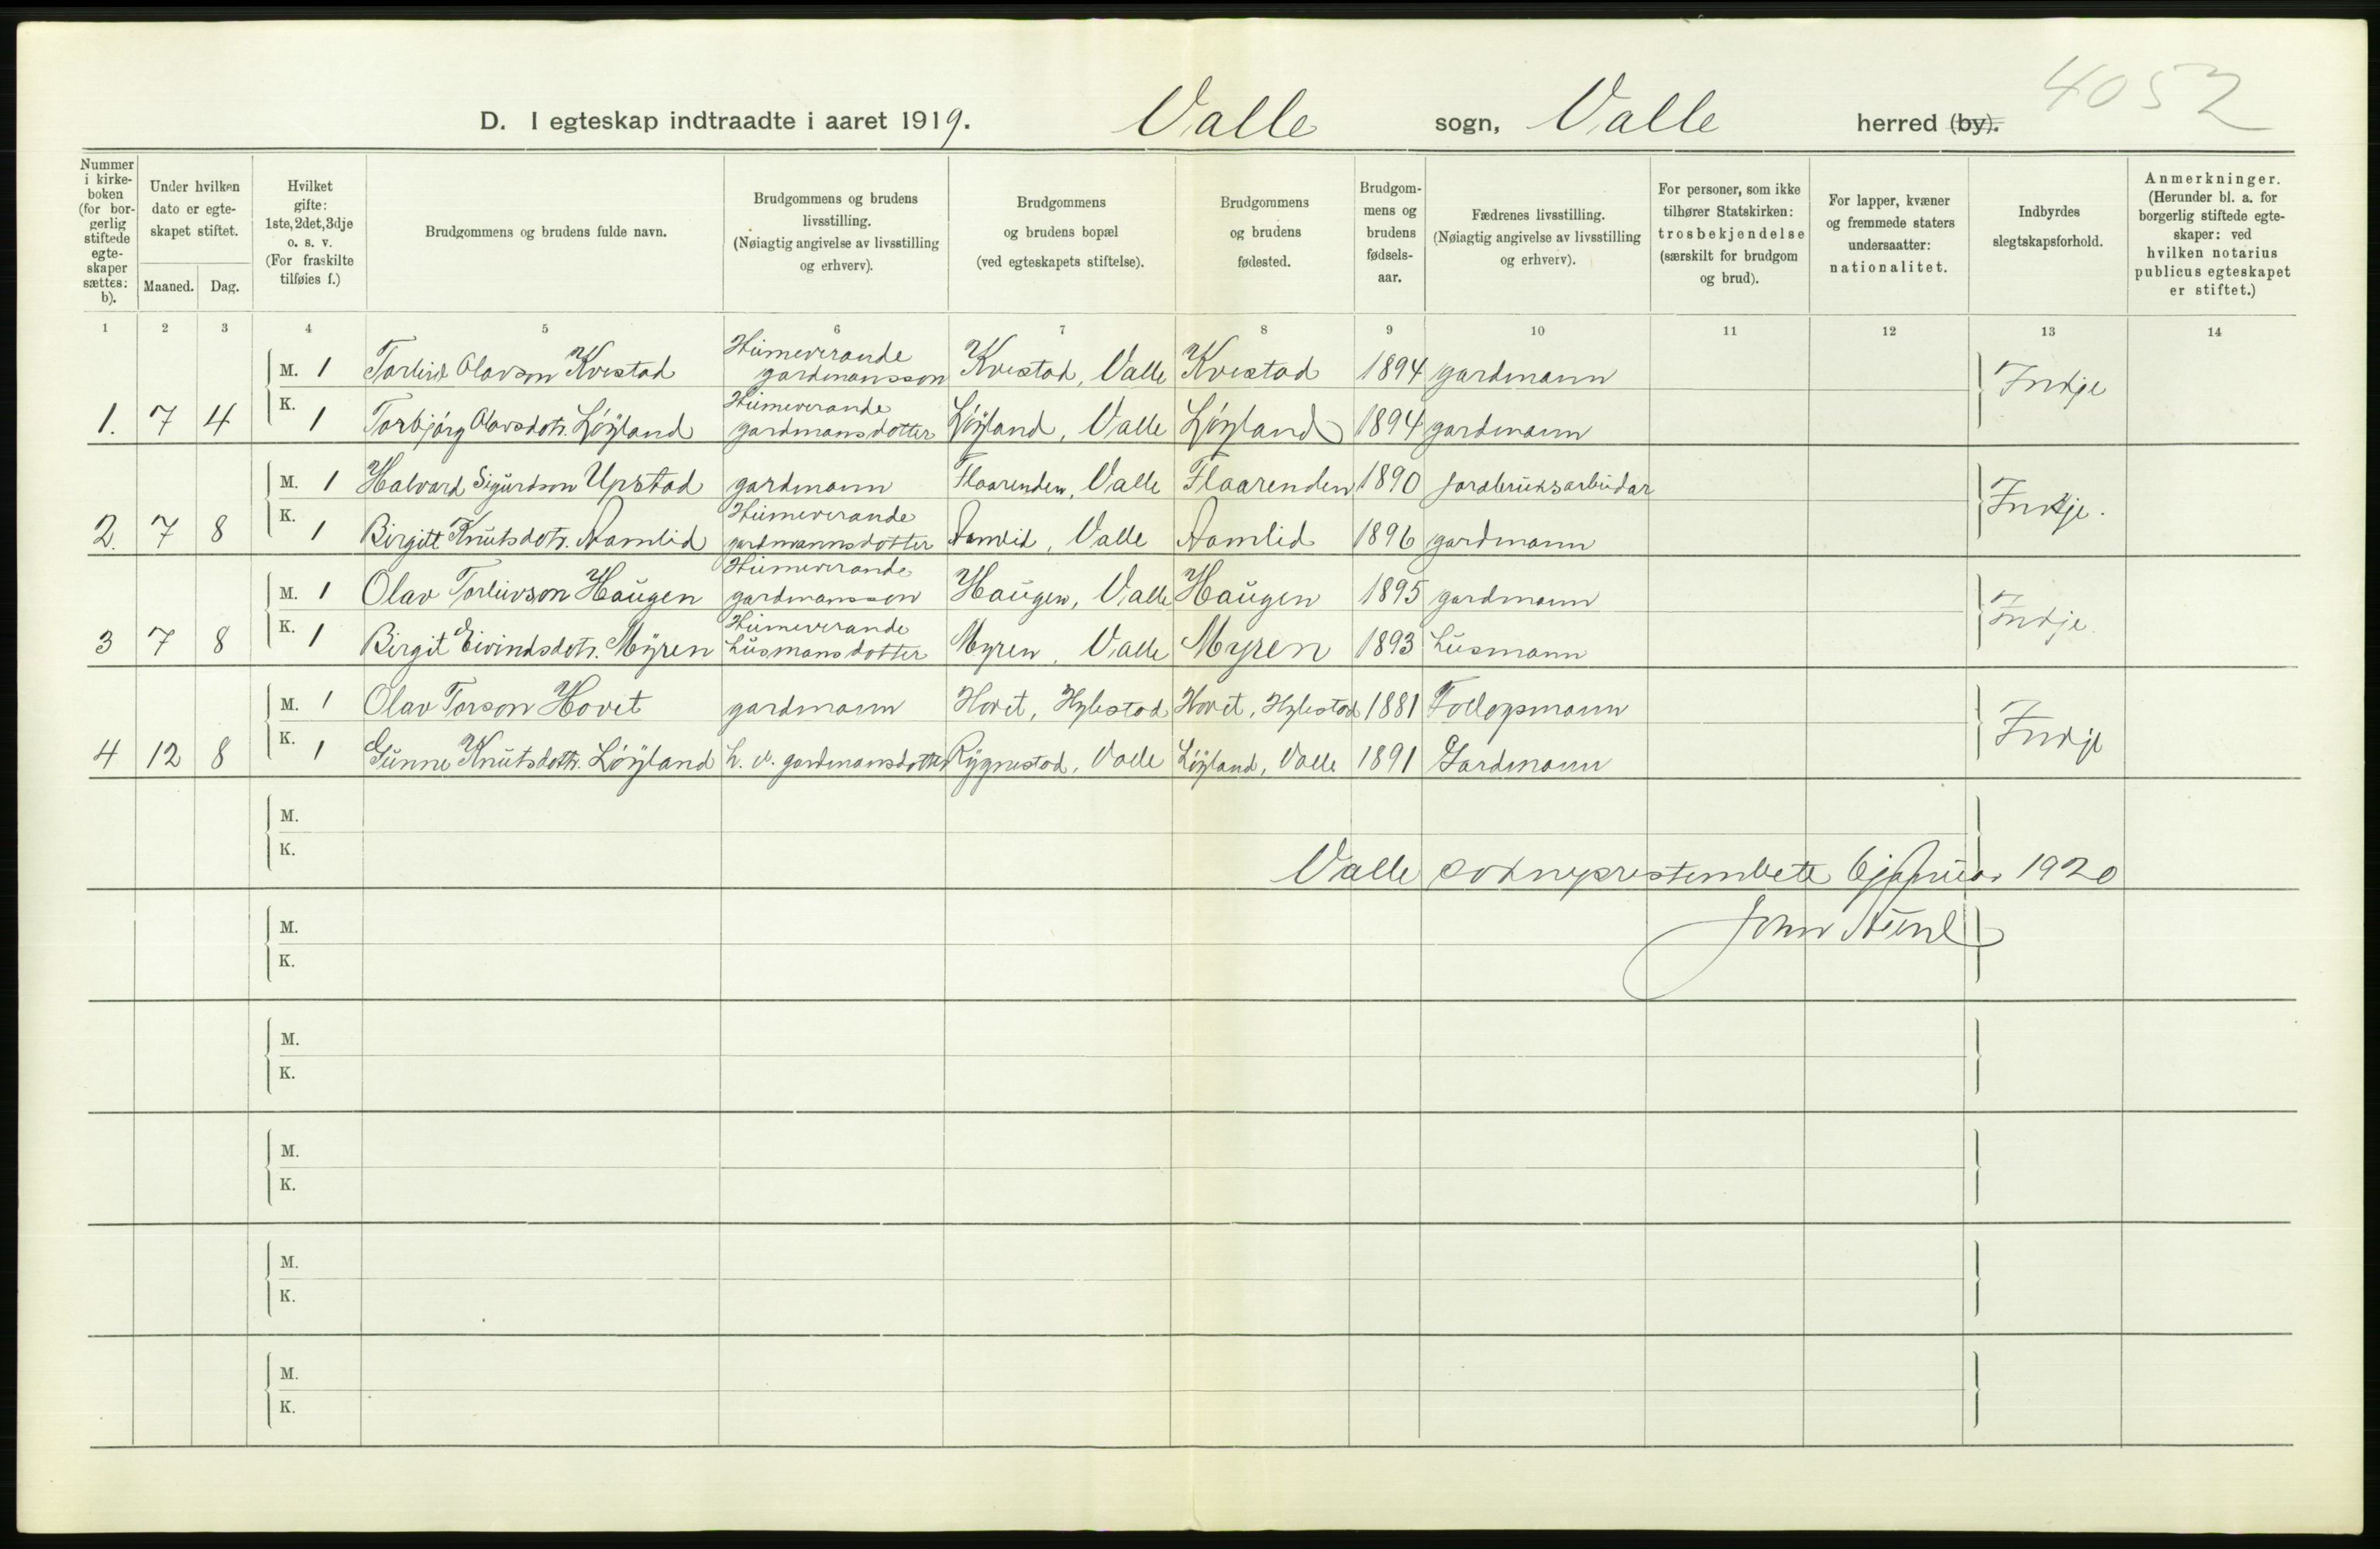 4052
D. I egteskap indtraadte i aaret 1919. Valle sogn, Valle herred (by).
Nummer i kirkeboken (for borgerlig stiftede egteskaper sættes: b).
Under hvilken dato er egteskapet stiftet.
Maaned. Dag.
Hvilket gifte: 1ste, 2det, 3dje o. s. v. (For fraskilte tilføies f.)
Brudgommens og brudens fulde navn.
Brudgommens og brudens livsstilling. (Nøiagtig angivelse av livsstilling og erhverv).
Brudgommens og brudens bopæl (ved egteskapets stiftelse).
Brudgommens og brudens fødested.
Brudgommens og brudens fødselsaar.
Fædrenes livsstilling. (Nøiagtig angivelse av livsstilling og erhverv).
For personer, som ikke tilhører Statskirken: trosbekjendelse (særskilt for brudgom og brud).
For lapper, kvæner og fremmede staters undersaatter: nationalitet.
Indbyrdes slegtskapsforhold.
Anmerkninger. (Herunder bl. a. for borgerlig stiftede egteskaper: ved hvilken notarius publicus egteskapet er stiftet.)
1 2 3 4 5 6 7 8 9 10 11 12 13 14
M. 1 Torleiv Olavson Kvestad Heimeverande gardmansson Kvestad, Valle Kvestad 1894 gardmann Inkje
1. 7 4 K. 1 Torbjørg Olavsdotr. Løyland Heimeverande gardmansdotter Løyland, Valle Løyland 1894 gardmann
M. 1 Halvard Sigurdson Upstad gardmann Flaarenden, Valle Flaarenden 1890 jordbruksarbeidar Inkje.
2. 7 8 K. 1 Birgitt Knutsdotr. Aamlid Heimeverande gardmannsdotter Aamlid, Valle Aamlid 1896 gardmann
M. 1 Olav Torleivson Haugen Heimeverande gardmansson Haugen, Valle Haugen 1895 gardmann Inkje
3 7 8 K. 1 Birgit Eivindsdotr. Myren Heimeverande husmansdotter Myren, Valle Myren 1893 husmann
M. 1 Olav Torson Hovet gardmann Hovet, Hylestad Hovet, Hylestad 1881 Inkje
4 12 8 K. 1 Gunne Knutsdottr. Løyland h. v. gardmansdotter Rygnestad, Valle Løyland, Valle 1891 Gardmann
M.
K.
Valle sokneprestembete 6 januar 1920
M.
John
K.
M.
K.
M.
K.
M.
K.
M.
K.